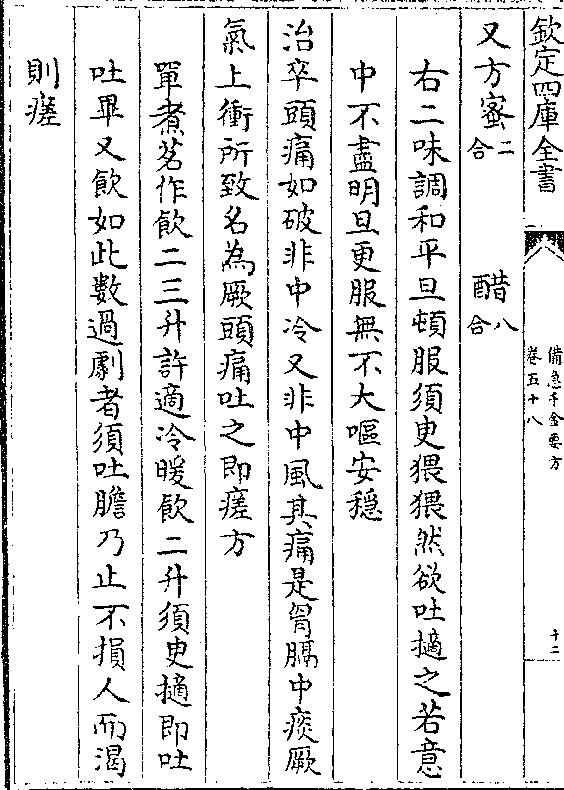 欽定四庫全書
備急千金要方
卷五十八
十二
又方蜜二合 醋八合
右二味調和平旦頓服須臾猥猥然欲吐擿之若意
中不盡明旦更服無不大嘔安穩
治卒頭痛如破非中冷又非中風其痛是胷膈中痰厥
氣上衝所致名為厥頭痛吐之即瘥方
單煮茗作飲二三升許適冷暖飲二升須臾擿即吐
吐畢又飲如此數過劇者須吐膽乃止不損人而渴
則瘥